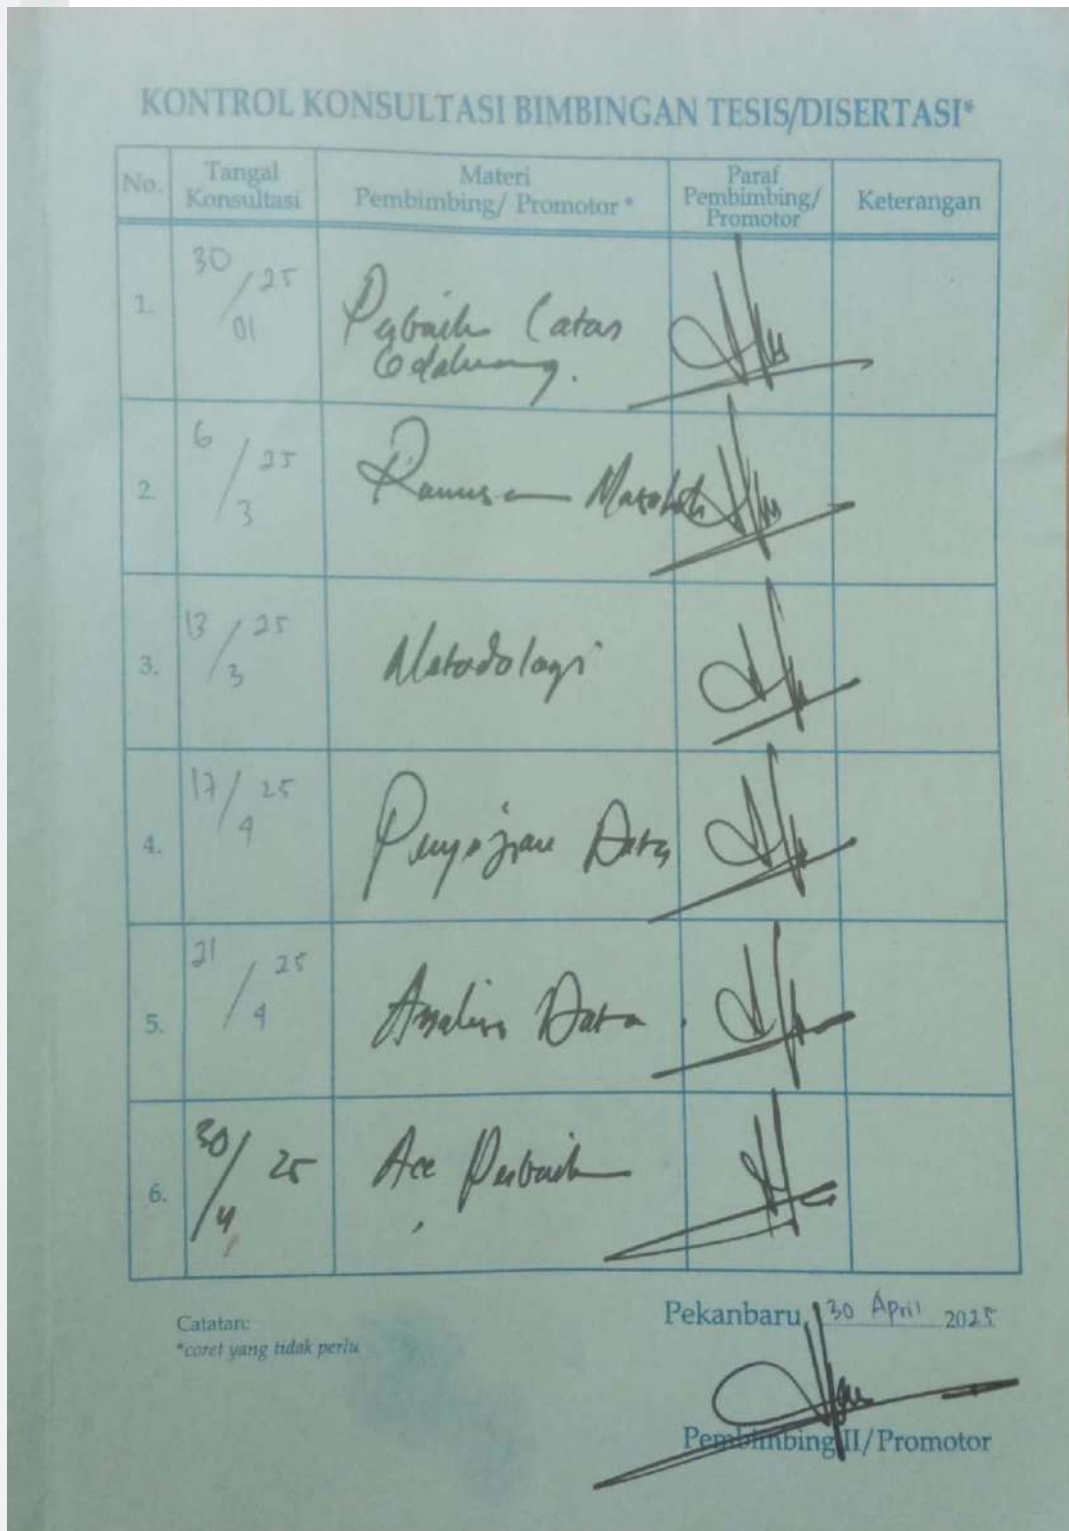 KONTROL KONSULTASI BIMBINGAN TESIS/DISERTASI*
No. Tangal Konsultasi Materi Pembimbing/ Promotor * Paraf Pembimbing/ Promotor Keterangan
1. 30/01 25 Perbaik Latar
2. 6/3 25 Rumusan Masalah
3. 13/3 25 Metodologi
4. 17/4 25 Penyajian Data
5. 21/4 25 Analisis Data
6. 30/4 25 Acc Perbaik
Pekanbaru, 30 April 2025
Catatan:
*coret yang tidak perlu
Pembimbing II/Promotor